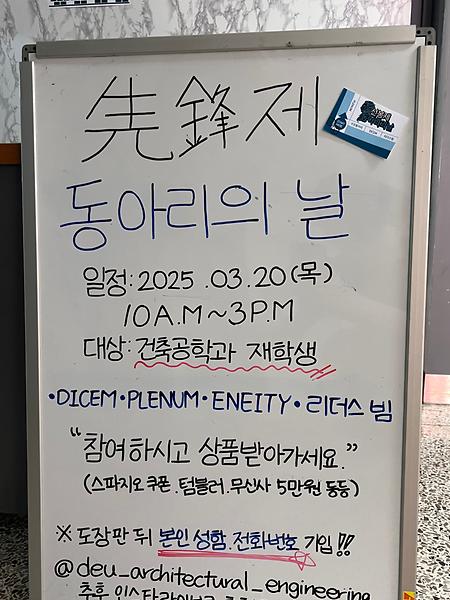 先鋒제
동아리의 날
일정: 2025 .03.20(목)
10A.M~3P.M
대상: 건축공학과 재학생
•DICEM•PLENUM•ENEITY•리더스 빔
“참여하시고 상품받아가세요.”
(스파지오 쿠폰.텀블러.무신사 5만원 등등)
※ 도장판 뒤 본인 성함.전화번호 기입!!
@deu_architectural_engineering
추후 인스타